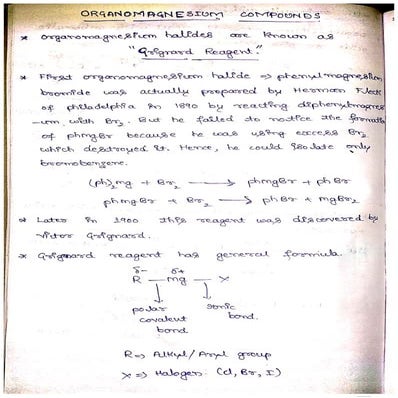 ORGANOMAGNESIUM COMPOUNDS
* Organomagnesium halides are known as
"Grignard Reagent."
* First organomagnesium halide ⇒ phenyl magnesium
bromide was actually prepared by Herman Fleck
of philadelphia in 1890 by reacting diphenylmagnes
-ium with Br2. But he failed to notice the formation
of phmgBr because he was using excess Br2
which destroyed it. Hence, he could isolate only
bromobenzene.
(ph)2mg + Br2 ⟶ phmgBr + phBr
phmgBr + Br2 ⟶ phBr + mgBr2
* Later in 1900 this reagent was discovered by
Victor Grignard.
* Grignard reagent has general formula.
δ- δ+
R — mg — X
↓ ↓
polar ionic
covalent bond.
bond
R ⇒ Alkyl/Aryl group
X ⇒ Halogen (Cl, Br, I)